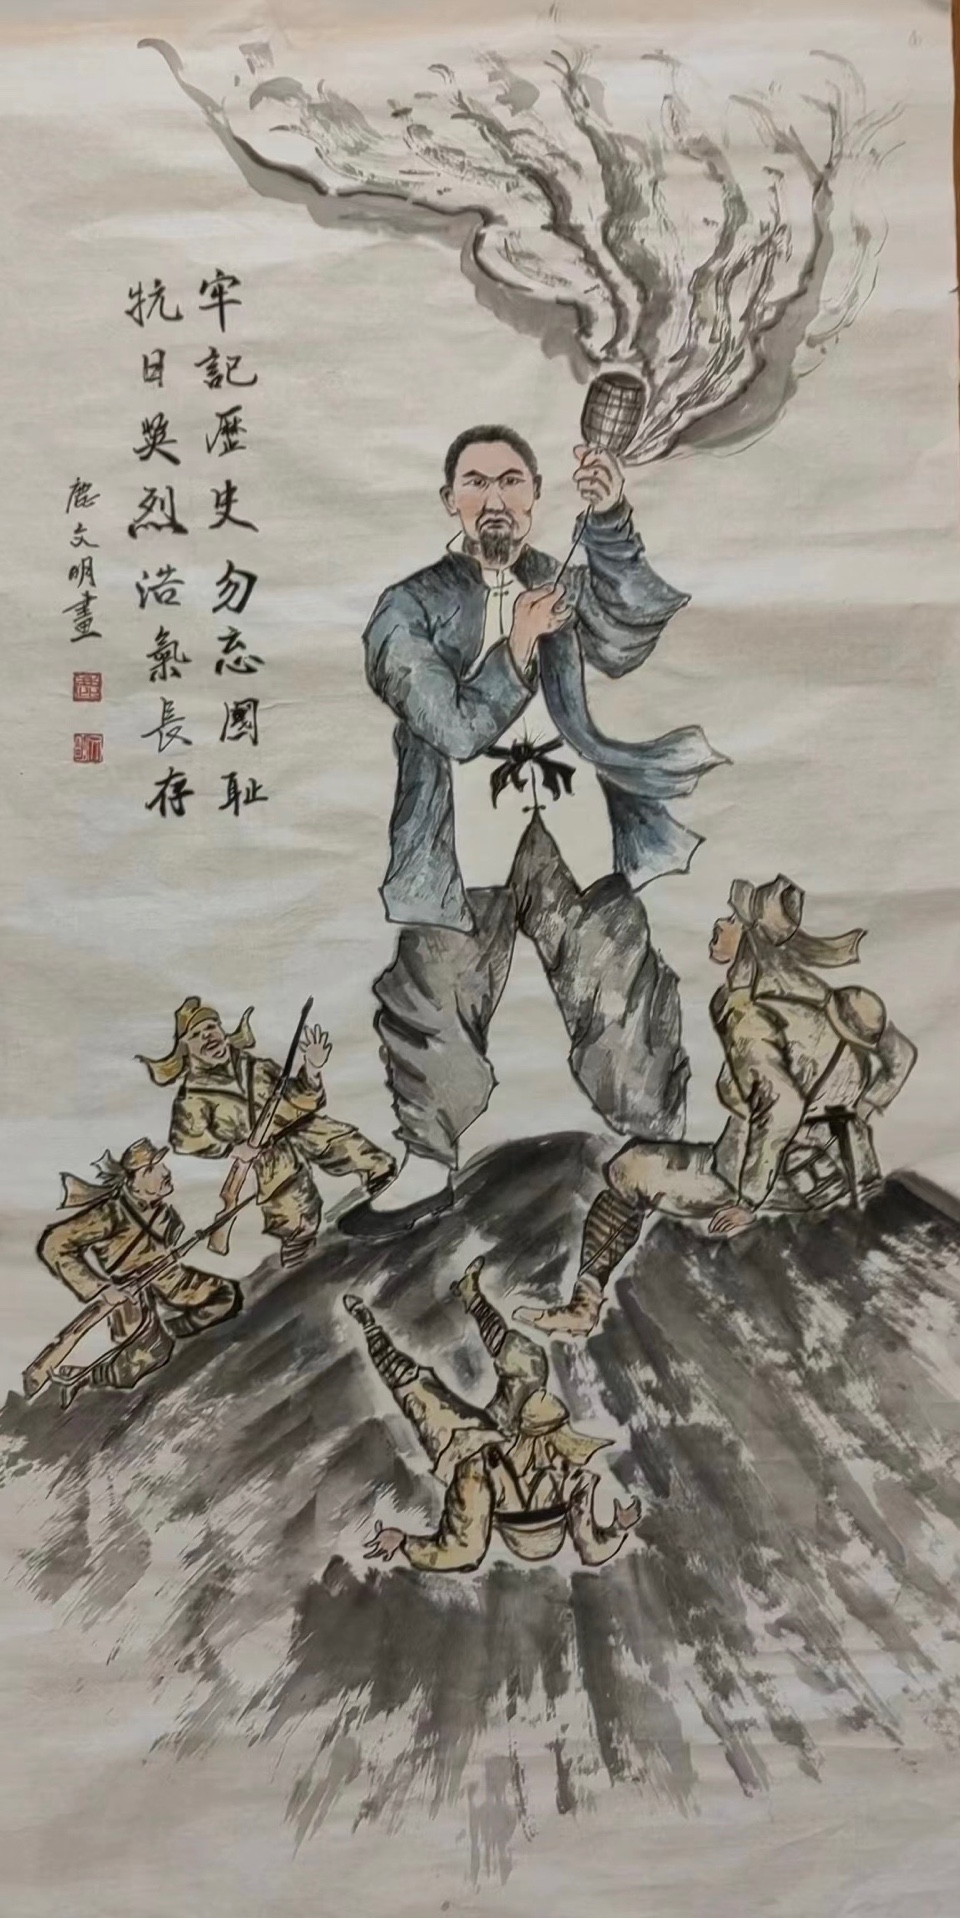 牢記歷史勿忘國耻
抗日英烈浩氣長存
鹿文明畫